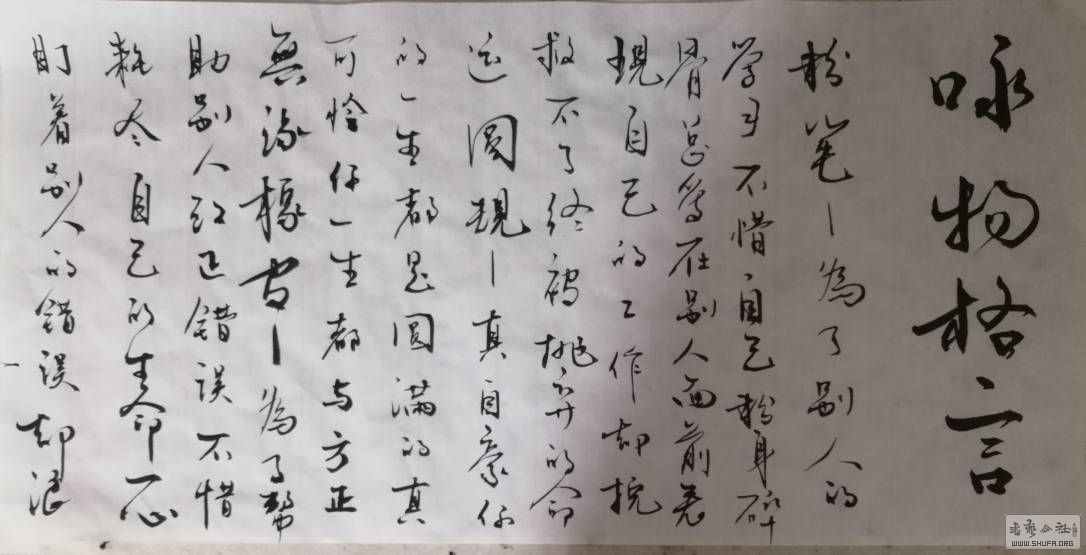 咏物格言
粉笔—為了别人的
学习不惜自己粉身碎
骨总爲在别人面前表
現自己的工作却挽
救不了终被抛弃的命
运圆規—真自豪你
的一生都是圆满的真
可怜你一生都与方正
無缘橡皮—為了幫
助别人改正错误不惜
耗尽自己的生命一心
盯着别人的错误却没
書法公社
WWW.SHUFA.ORG